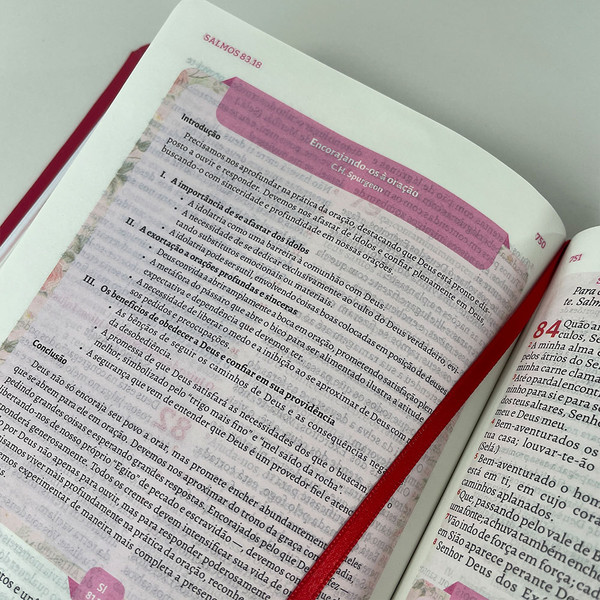 SALMOS 83.18
750
Encorajando-os à oração
C.H. Spurgeon
Introdução
Precisamos nos aprofundar na prática da oração, destacando que Deus está pronto e dis-
posto a ouvir e responder. Devemos nos afastar de ídolos e confiar plenamente em Deus,
buscando-o com sinceridade e profundidade em nossas orações.
I. A importância de se afastar dos ídolos
• A idolatria como uma barreira à comunhão com Deus.
• A necessidade de se dedicar exclusivamente ao culto do Deus verdadeiro, evi-
tando substitutos emocionais ou materiais.
• A idolatria pode ser sutil, envolvendo coisas boas colocadas em posição de deuses.
II. A exortação a orações profundas e sinceras
• Deus convida a abrir amplamente a boca em oração, prometendo satisfação
• A metáfora do pássaro que abre o bico para ser alimentado ilustra a atitude
expectativa e dependência que devemos ter.
• A necessidade de liberar o medo e a inibição ao se aproximar de Deus com
sos pedidos e preocupações.
III. Os benefícios de obedecer a Deus e confiar em sua providência
• As bênçãos de seguir os caminhos de Deus e as consequências
da desobediência.
• A promessa de que Deus satisfará as necessidades dos que o buscam
melhor, simbolizado pelo "trigo mais fino" e "mel saído da rocha".
• A segurança que vem de entender que Deus é um provedor fiel e
Conclusão
Deus não só encoraja seu povo a orar, mas promete encher abundantemente
que se abrem para ele em oração. Devemos nos aproximar do trono da graça com
pedindo grandes coisas e esperando grandes respostas. Encorajados pelo que Deus
libertando-nos de nosso próprio "Egito" de pecado e escravidão
ponderá generosamente. Todos os crentes devem intensificar sua vida de
por Deus não apenas para ouvir, mas para responder poderosamente
viver mais profundamente na prática da oração,
experimentar de maneira mais completa a
SI
81
751
Para
te. Salm
84 Quão
culos, Se
2 A minha alma
pelos átrios do Se
minha carne clama
3 Até o pardal encon
minho para si e para s
dos teus altares, Senho
meu e Deus meu.
4 Bem-aventurados os
tua casa; louvar-te-ão
(Selá.)
5 Bem-aventurado o hom
está em ti, em cujo cora
caminhos aplanados.
6 Que, passando pelo vale de B
uma fonte; a chuva também enche
7 Vão indo de força em força; cad
em Sião aparece perante De
8 Senhor Deus dos Ex